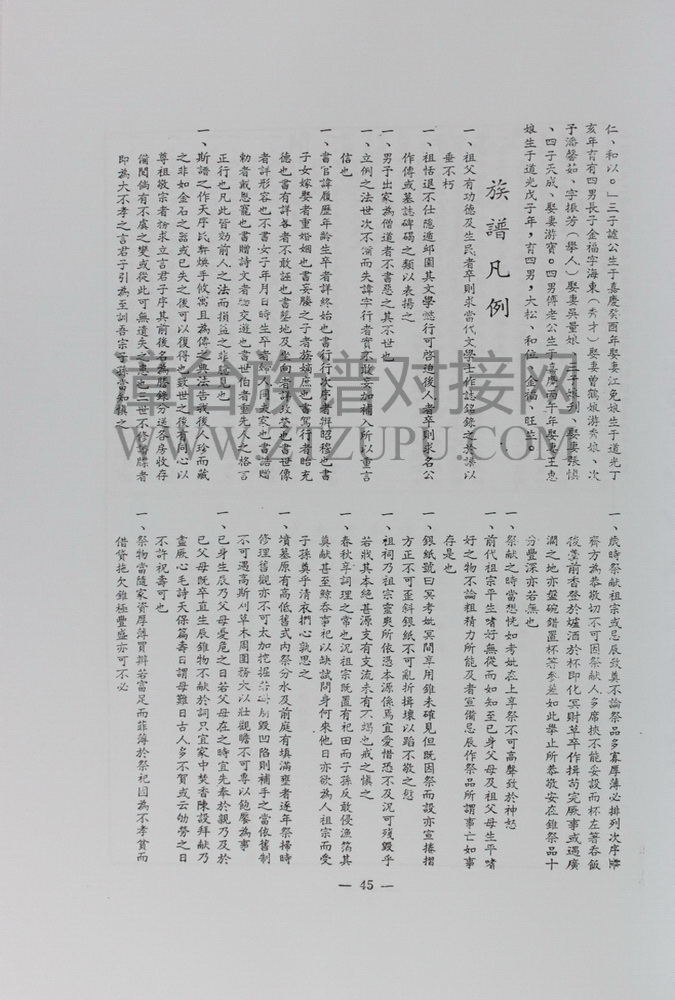 仁、和以。」三子謐公生于嘉慶癸酉年娶妻江兔娘生于道光丁
亥年育有四男長子金福字海東（秀才）娶妻曾鶴娘游秀娘、次
子潘馨茹、字振芳（舉人）娶妻吳量娘、三子娘刊、娶妻張慎
、四子天成、娶妻游寶。四男傅老公生于嘉慶丙子年娶妻王惠
娘生于道光戊子年，有四男，大松、和位、金福、旺生。
族譜凡例
一、祖父有功德及生民者卒則求當代文學士作誌銘錄之於譜以
垂不朽
一、祖恬退不仕隱遁邱園其文學懿行可啓迪後人者卒則求名公
作傳或墓誌碑碣之類以表揚之
一、男子出家為僧道者不書惡之其不世也
一、立例之法世次不備而失諱字行者實不敢妄加補入所以重言
信也
一、書官諱履歷年齡生卒者詳終始也書行行次序者辨昭穆也書
子女嫁娶者重婚姻也書妾媵之子者族嫡庶也書篤行者昭充
德也書有詳畧者不敢誣也書墓地及坐向者詳教塋也書世像
者詳形容也不書女子年月日時生卒者婦人同夫家也書誥贈
勅者戴恩寵也書贈詩文者志交遊也書世伯者重先人之格言
正行也凡此皆効前人之法而損益之非臆見也
一、斯譜之作天序民彝煥乎攸寓且為傳之典法告我後人珍而藏
之非如金石之器或已失之後可以復得也致世之後有同心以
尊祖敬宗者務求立言君子序其前後名為謄錄分送各房收存
備閱倘有不虞之變或從此可無遺失之患也三世不修譜牒者
即為大不孝之言君子引為至訓吾宗子孫當知慎之
一、歲時祭献祖宗或忌辰致奠不論祭品多寡厚薄必排列次序擇
齊方為恭敬切不可因祭献人多席挾不能妥設而杯左箸吞飯
後羹前香登於爐酒於杯即化冥財草卒作揖苟完厥事或遇廣
濶之地亦盤碗錯置杯等參差如此舉止所恭敬安在雖祭品十
分豐深亦若無也
一、祭献之時當想恍如考妣在上享祭不可高聲致於神怒
一、前代祖宗平生嗜好無從而如知至已身父母及祖父母生平嗜
好之物不論粗精力所能及者宣備忌辰作祭品所謂事亡如事
存是也
一、銀紙號曰冥考妣冥間享用錐未確見但既因祭而設亦宣捲摺
方正不可歪斜銀紙不可亂折揖壞以蹈不敬之愆
一、祖祠乃祖宗靈爽所依憑本源係焉宜愛惜恐不及況可殘毀乎
若戕其本絕甚源支有支流未有不竭也戒之慎之
一、春秋享詞理之常也況祖宗既置有祀田而子孫反敢侵漁箔其
奠献甚至鯨吞事祀以缺試問身何來他日亦欲為人祖宗而受
子孫奠乎清衣捫心熟思之
一、墳墓原有高低舊式內祭分水及前庭有填滿壅者逐年祭掃時
修理舊觀亦不可太加挖掘若毋剔毀凹陷則補手之當依舊制
不可遇高斯刈草木周圍務大以壯觀瞻不可專以飽饜為事
一、已身生辰乃父母憂危之日若父母在之時宜先奉於親乃及於
已父母既卒直生辰錐物不献於詞只宜家中焚香陳設拜献乃
盡厥心毛詩天保篇壽曰謂母難日古人多不賀或云劬勞之日
不許祝壽可也
一、祭物當隨家資厚薄買辦若富足而菲薄於祭祀固為不孝貧而
借貸拖欠錐極豐盛亦可不必
— 45 —
寻音族谱对接网
WWW.ZTZUPU.COM